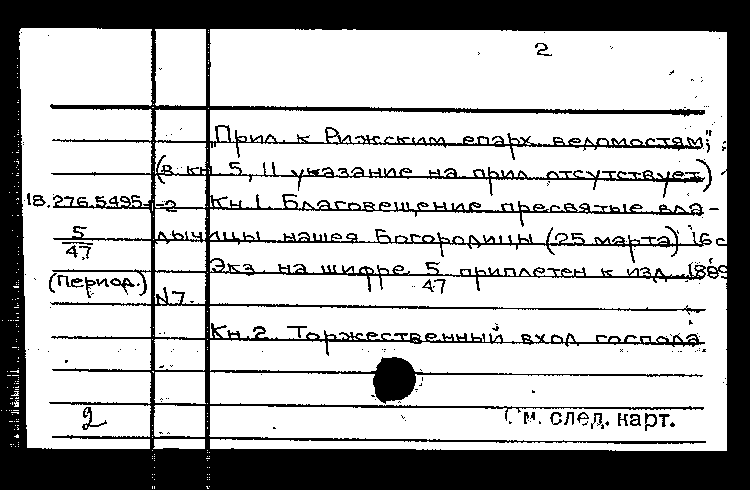 2
"Прил. к Рижским епарх. ведомостям";
(в кн. 5, 11 указание на прил. отсутствует)
18.276.5495-2 Кн.1. Благовещение пресвятые вла-
5/47 дычицы нашея Богородицы (25 марта) 16 с
Экз. на шифре 5/47 приплетен к изд. 1889
(Период.) N7.
Кн.2. Торжественный вход господа
2
См. след. карт.